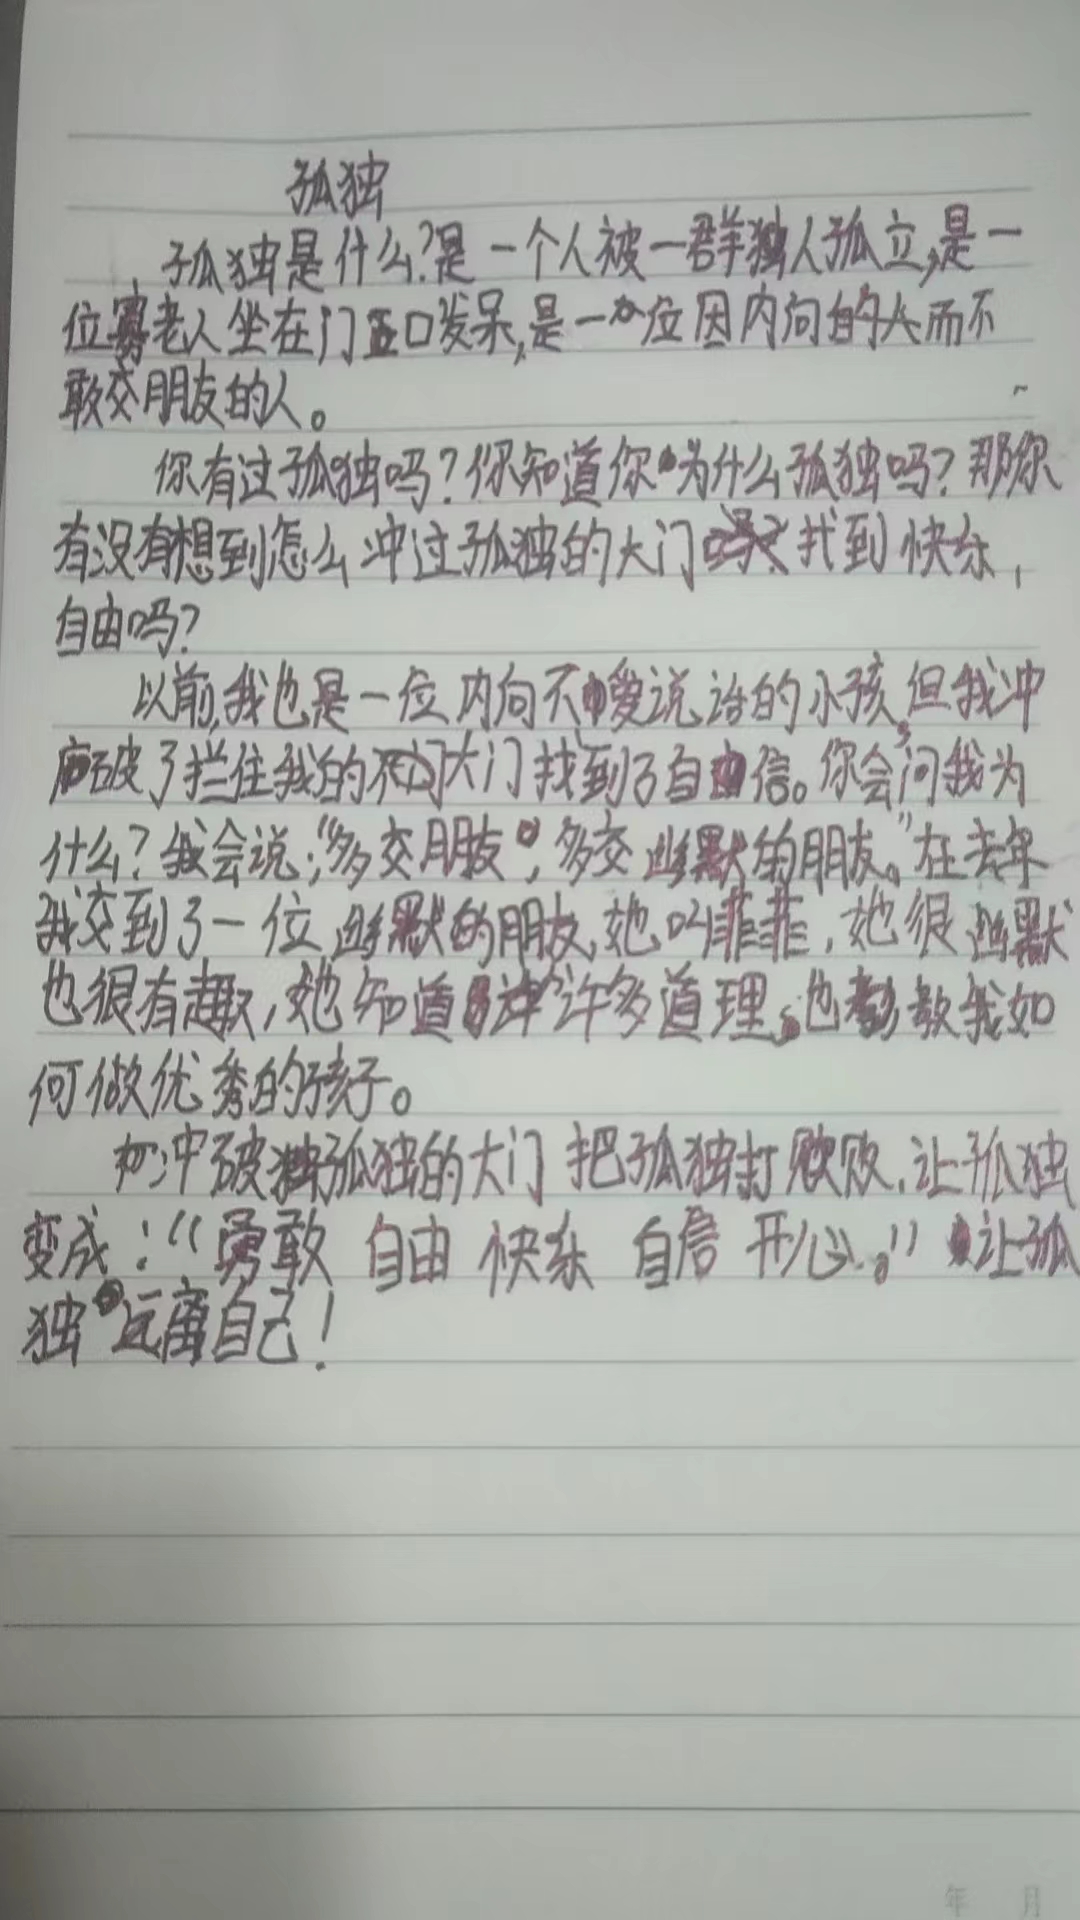 孤独
孤独是什么?是一个人被一群人孤立,是一
位老人坐在门口发呆,是一位因内向而不
敢交朋友的人。
你有过孤独吗?你知道你为什么孤独吗?那你
有没有想到怎么冲过孤独的大门找到快乐,
自由吗?
以前,我也是一位内向不爱说话的小孩,但我冲
破了拦住我的大门找到了自信。你会问我为
什么?我会说:“多交朋友,多交幽默的朋友。”在去年
我交到了一位幽默的朋友,她叫菲菲,她很幽默
也很有趣,她知道许多道理,也教我如
何做优秀的孩子。
冲破孤独的大门 把孤独打败,让孤独
变成:“勇敢 自由 快乐 自信 开心。”让孤
独远离自己!
年 月